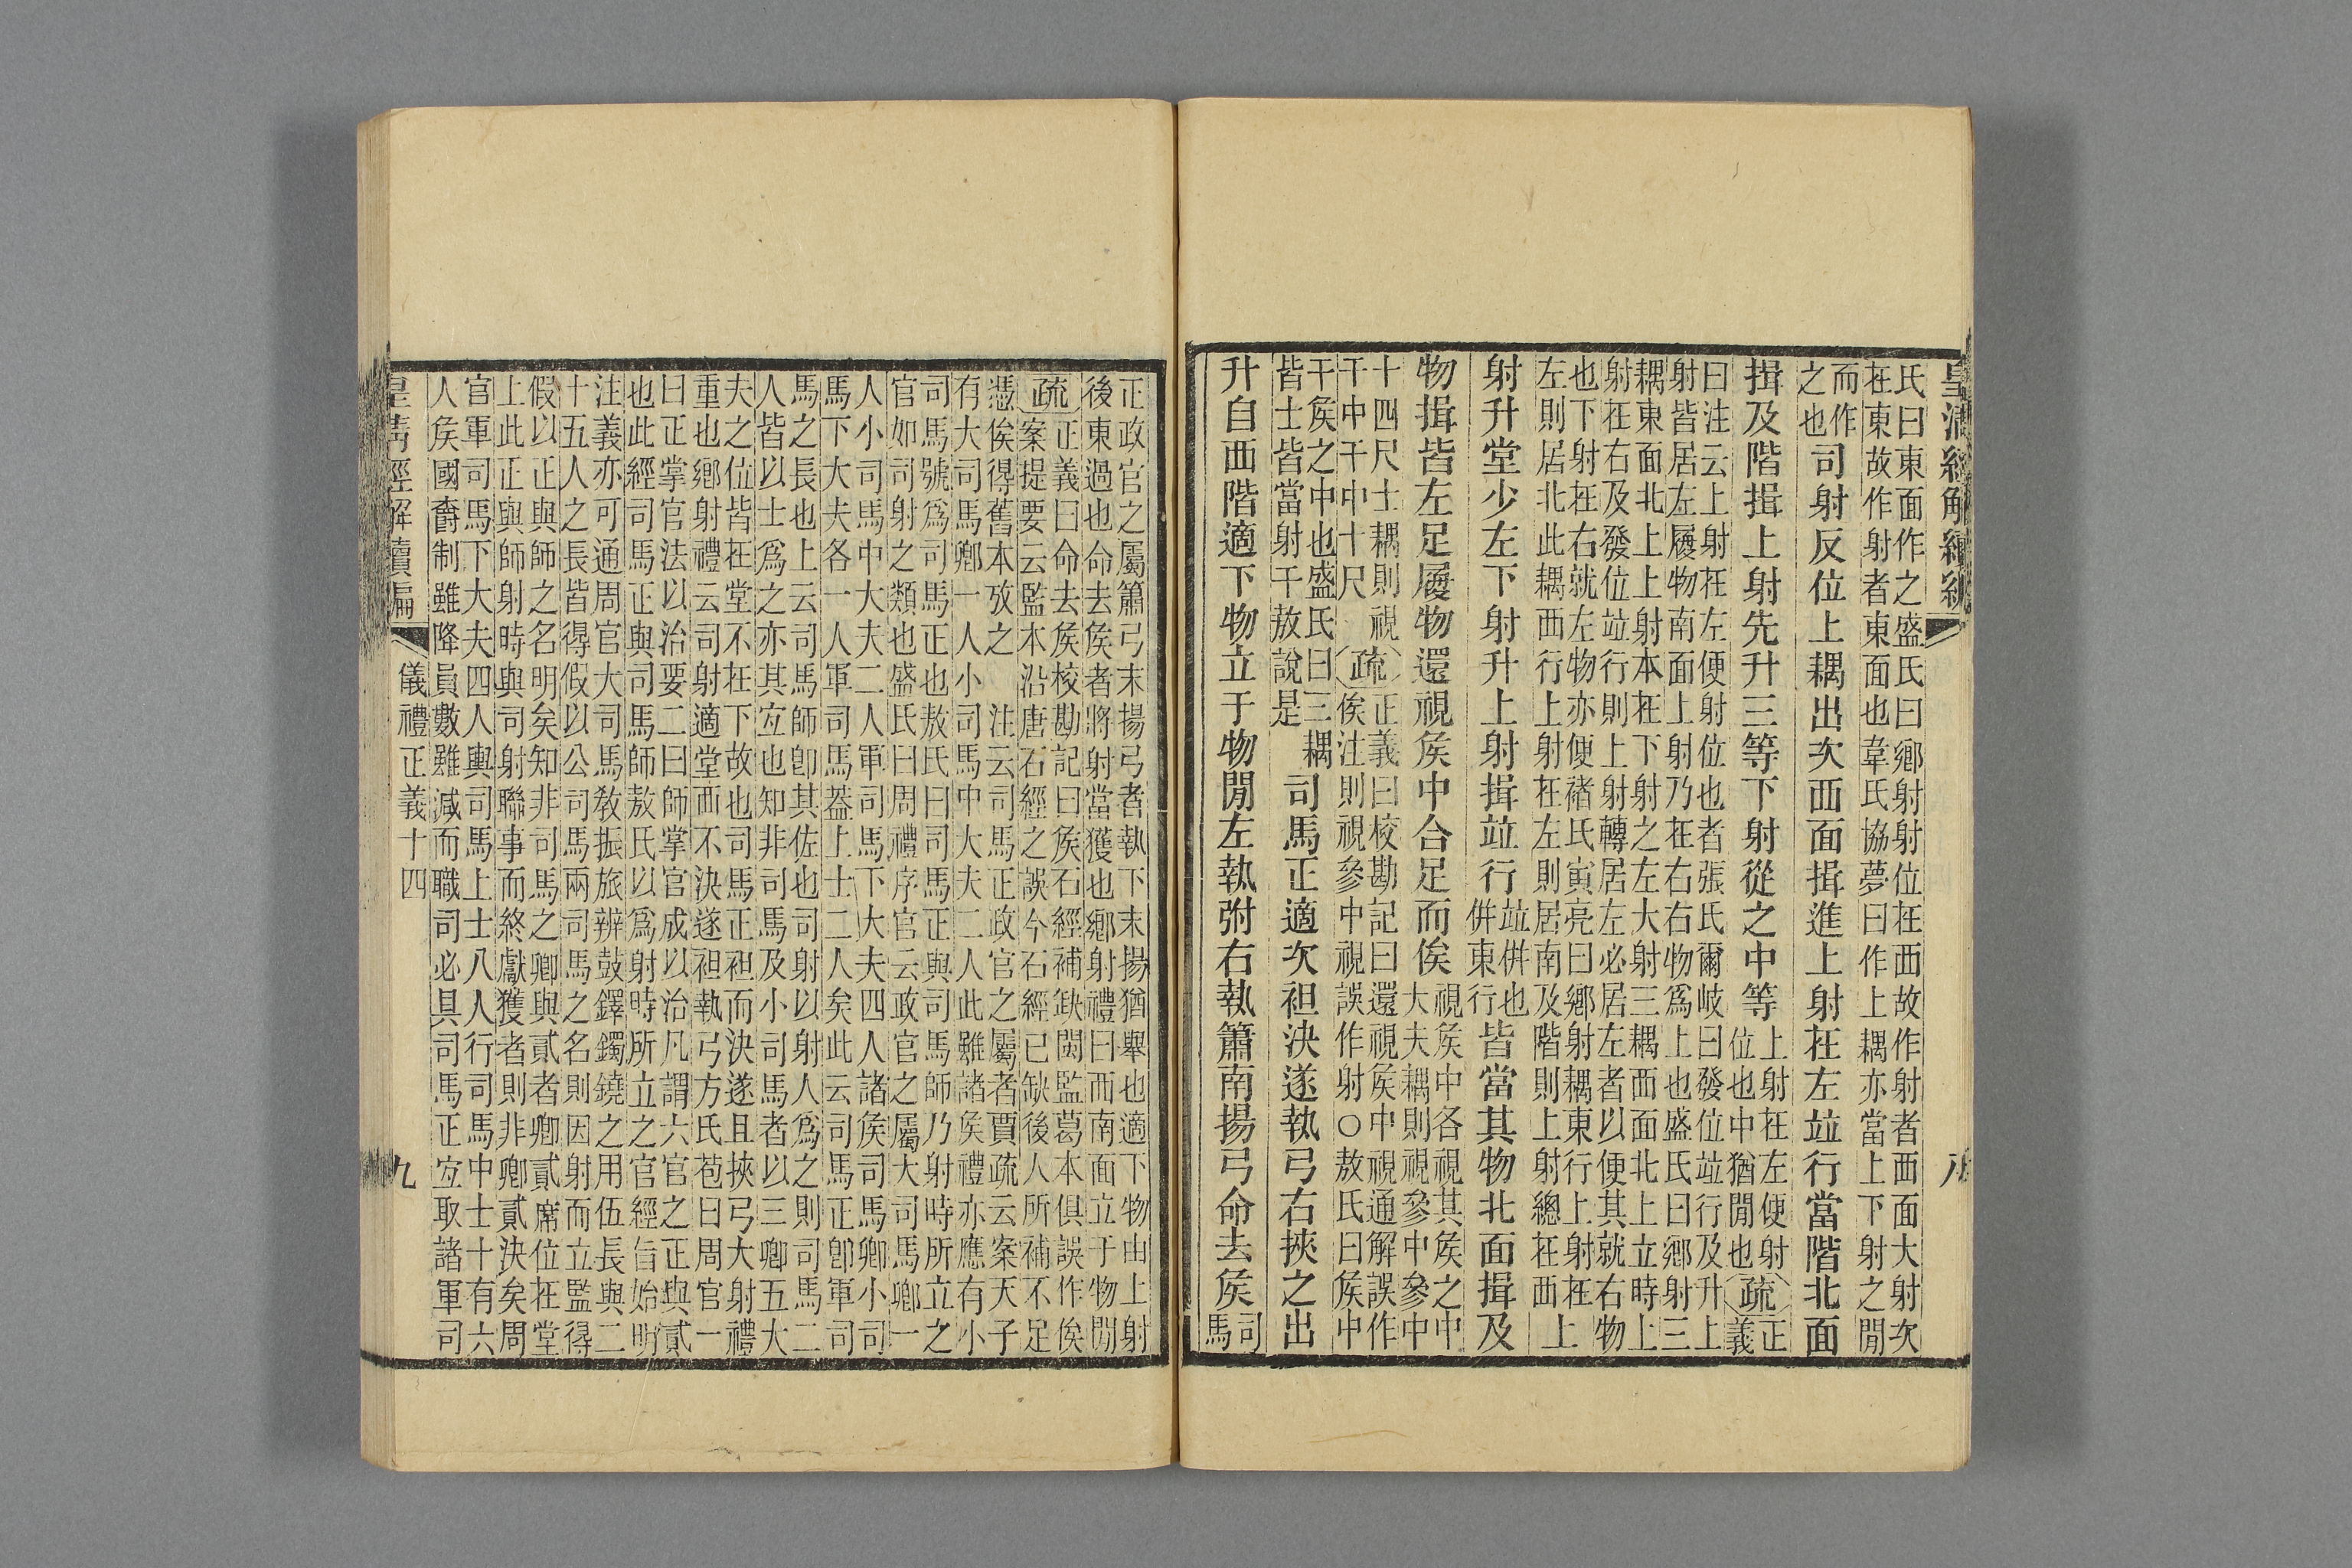 皇清經解續編
八
氏曰東面作之盛氏曰鄉射射位在西故作射者西面大射次
在東故作射者東面也韋氏協夢曰作上耦亦當上下射之閒
而作
之也
司射反位上耦出次西面揖進上射在左竝行當階北面
揖及階揖上射先升三等下射從之中等
上射在左便射
位也中猶閒也
疏
正義
曰注云上射在左便射位也者張氏爾岐曰發位竝行及升上
射皆居左履物南面上射乃在右右物爲上也盛氏曰鄉射三
耦東面北上上射本在下射之左大射三耦西面北上立時上
射在右及發位竝行則上射轉居左必居左者以便其就右物
也下射在右就左物亦便褚氏寅亮曰鄉射耦東行上射在右
左則居北此耦西行上射在左則居南及階則上射總在西上
射升堂少左下射升上射揖竝行
竝併也
併東行
皆當其物北面揖及
物揖皆左足履物還視矦中合足而俟
視矦中各視其矦之中
大夫耦則視參中參中
十四尺士耦則視
干中干中十尺
疏
正義曰校勘記曰還視矦中視通解誤作
俟注則視參中視誤作射○敖氏曰矦中
干矦之中也盛氏曰三耦
皆士皆當射干敖說是
司馬正適次袒決遂執弓右挾之出
升自西階適下物立于物閒左執弣右執簫南揚弓命去矦
司
馬
正政官之屬簫弓末揚弓者執下末揚猶舉也適下物由上射
後東過也命去矦者將射當獲也鄉射禮曰西南面立于物閒
疏
正義曰命去矦校勘記曰矦石經補缺閩監葛本俱誤作俟
案提要云監本沿唐石經之誤今石經已缺後人所補不足
憑俟得舊本攷之 注云司馬正政官之屬者賈疏云案天子
有大司馬卿一人小司馬中大夫二人此雖諸矦禮亦應有小
司馬號爲司馬正也敖氏曰司馬正與司馬師乃射時所立之
官如司射之類也盛氏曰周禮序官云政官之屬大司馬卿一
人小司馬中大夫二人軍司馬下大夫四人諸矦司馬卿小司
馬下大夫各一人軍司馬葢上士二人矣此云司馬正卽軍司
馬之長也上云司馬師卽其佐也司射以射人爲之則司馬二
人皆以士爲之亦其宐也知非司馬及小司馬者以三卿五大
夫之位皆在堂不在下故也司馬正袒而決遂且挾弓大射禮
重也鄉射禮云司射適堂西不決遂袒執弓方氏苞曰周官一
曰正掌官法以治要二曰師掌官成以治凡謂六官之正與貳
也此經司馬正與司馬師敖氏以爲射時所立之官經旨始明
注義亦可通周官大司馬敎振旅辨鼓鐸鐲鐃之用伍長與二
十五人之長皆得假以公司馬兩司馬之名則因射而立監得
假以正與師之名明矣知非司馬之卿與貳者卿貳席位在堂
上此正與師射時與司射聯事而終獻獲者則非卿貳決矣周
官軍司馬下大夫四人輿司馬上士八人行司馬中士十有六
人矦國爵制雖降員數雖減而職司必具司馬正宐取諸軍司
皇清經解續編
儀禮正義十四
九